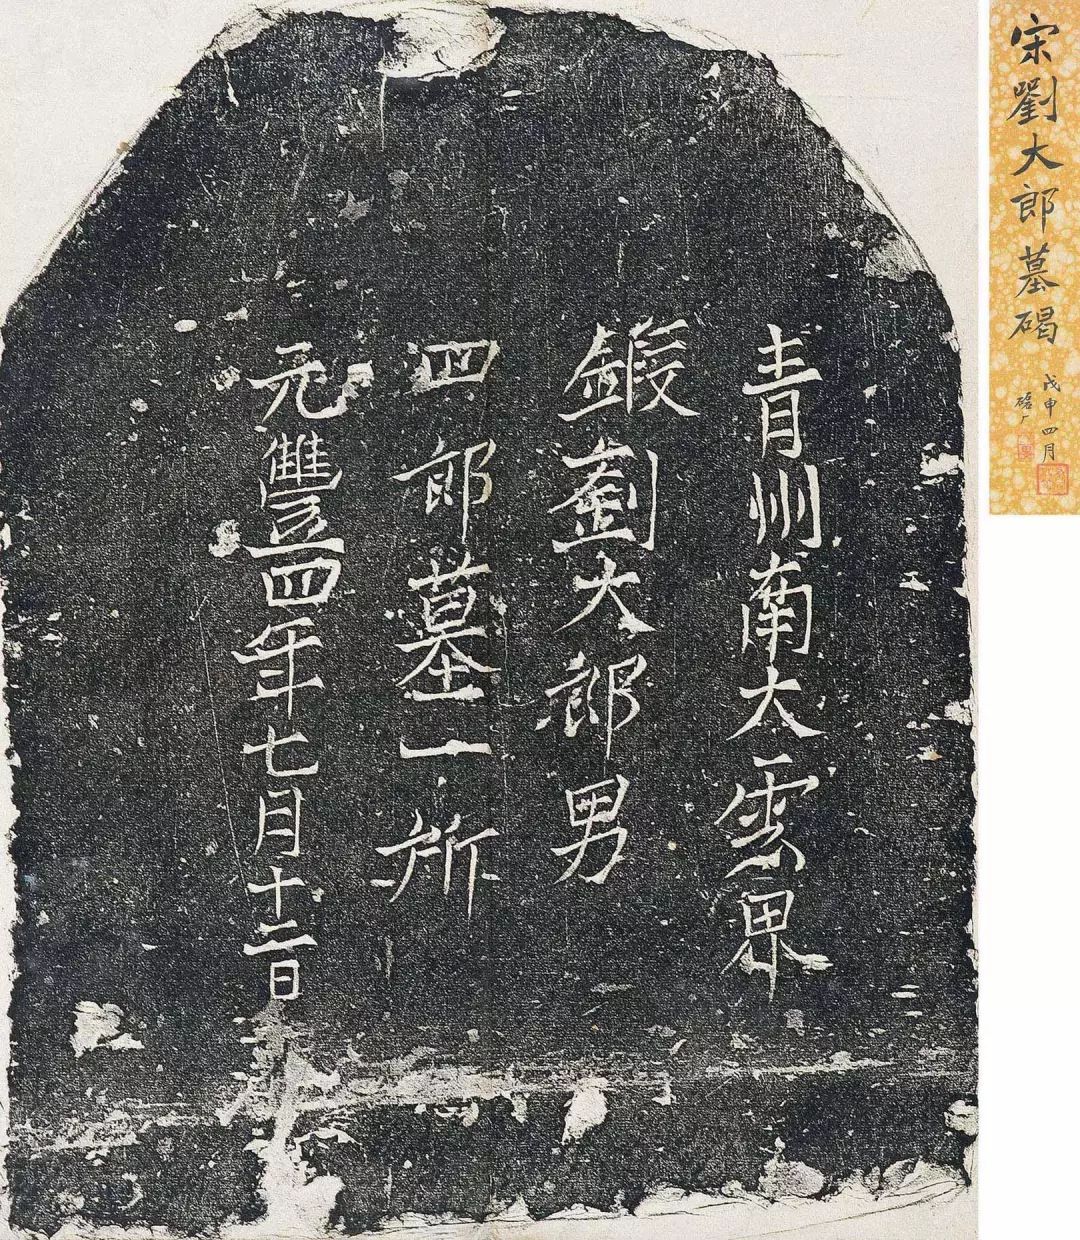 宋劉大郎墓碣
戊申四月
青州南太雲界
鍜劉大郎男
四郎墓一所
元豐四年七月十二日